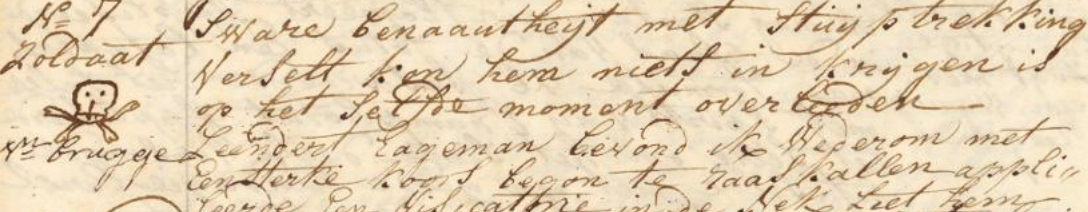 No 7
Zoldaat
Vn brugge
Sware benaautheijt met Stuijptrekking
Verselt kon hem niets in krijgen is
op het selfde moment overleeden
Leendert Hageman bevond ik Wederom met
Een sterke koors begon te raaskallen appli„
ceerde Een Visicatorie in de Nek Liet hem